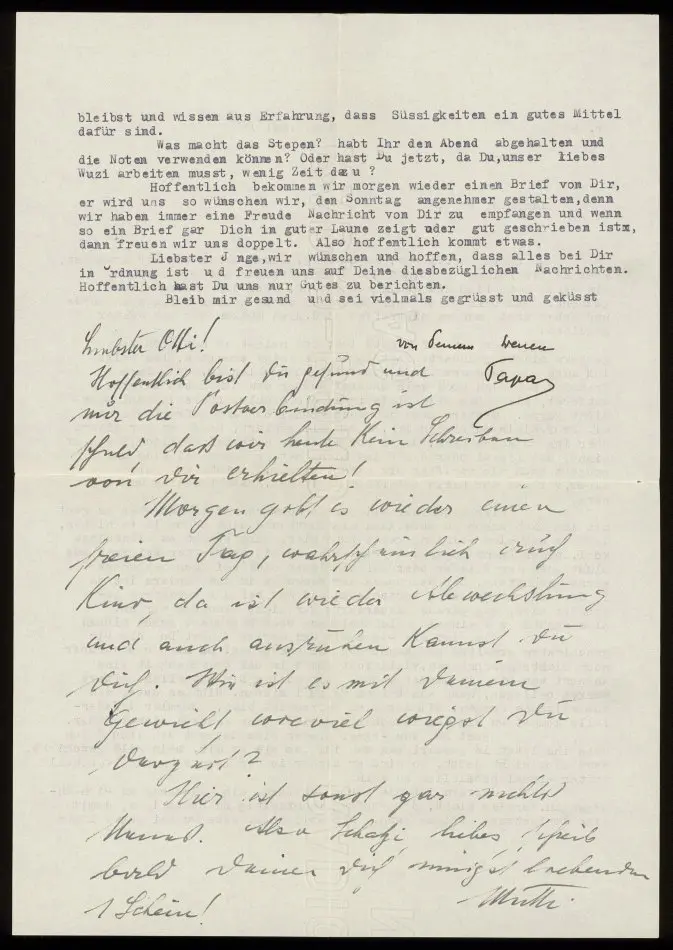 bleibst und wissen aus Erfahrung, dass Süssigkeiten ein gutes Mittel
dafür sind.
Was macht das Stepen? habt Ihr den Abend abgehalten und
die Noten verwenden können? Oder hast Du jetzt, da Du,unser liebes
Wuzi arbeiten musst, wenig Zeit dazu ?
Hoffentlich bekommen wir morgen wieder einen Brief von Dir,
er wird uns so wünschen wir, den Sonntag angenehmer gestalten,denn
wir haben immer eine Freude Nachricht von Dir zu empfangen und wenn
so ein Brief gar Dich in guter Laune zeigt oder gut geschrieben istx,
dann freuen wir uns doppelt. Also hoffentlich kommt etwas.
Liebster J nge,wir wünschen und hoffen, dass alles bei Dir
in rdnung ist u d freuen uns auf Deine diesbezüglichen Nachrichten.
Hoffentlich hast Du uns nur Gutes zu berichten.
Bleib mir gesund und sei vielmals gegrüsst und geküsst
von Deinem treuen
Papa
Liebster Otti!
Hoffentlich bist du gesund und
nur die Postverbindung ist
schuld, daß wir heute kein Schreiben
von dir erhielten!
Morgen gibt es wieder einen
freien Tag, wahrscheinlich auch
Kino, da ist wieder Abwechslung
und auch ausruhen kannst du
dich. Wie ist es mit deinem
Gewicht, wieviel wiegst du
derzeit?
Hier ist sonst gar nichts
Neues. Also Schatzi, liebes, schreib
bald deiner dich innigst liebenden
Mutti.
1 Schein!